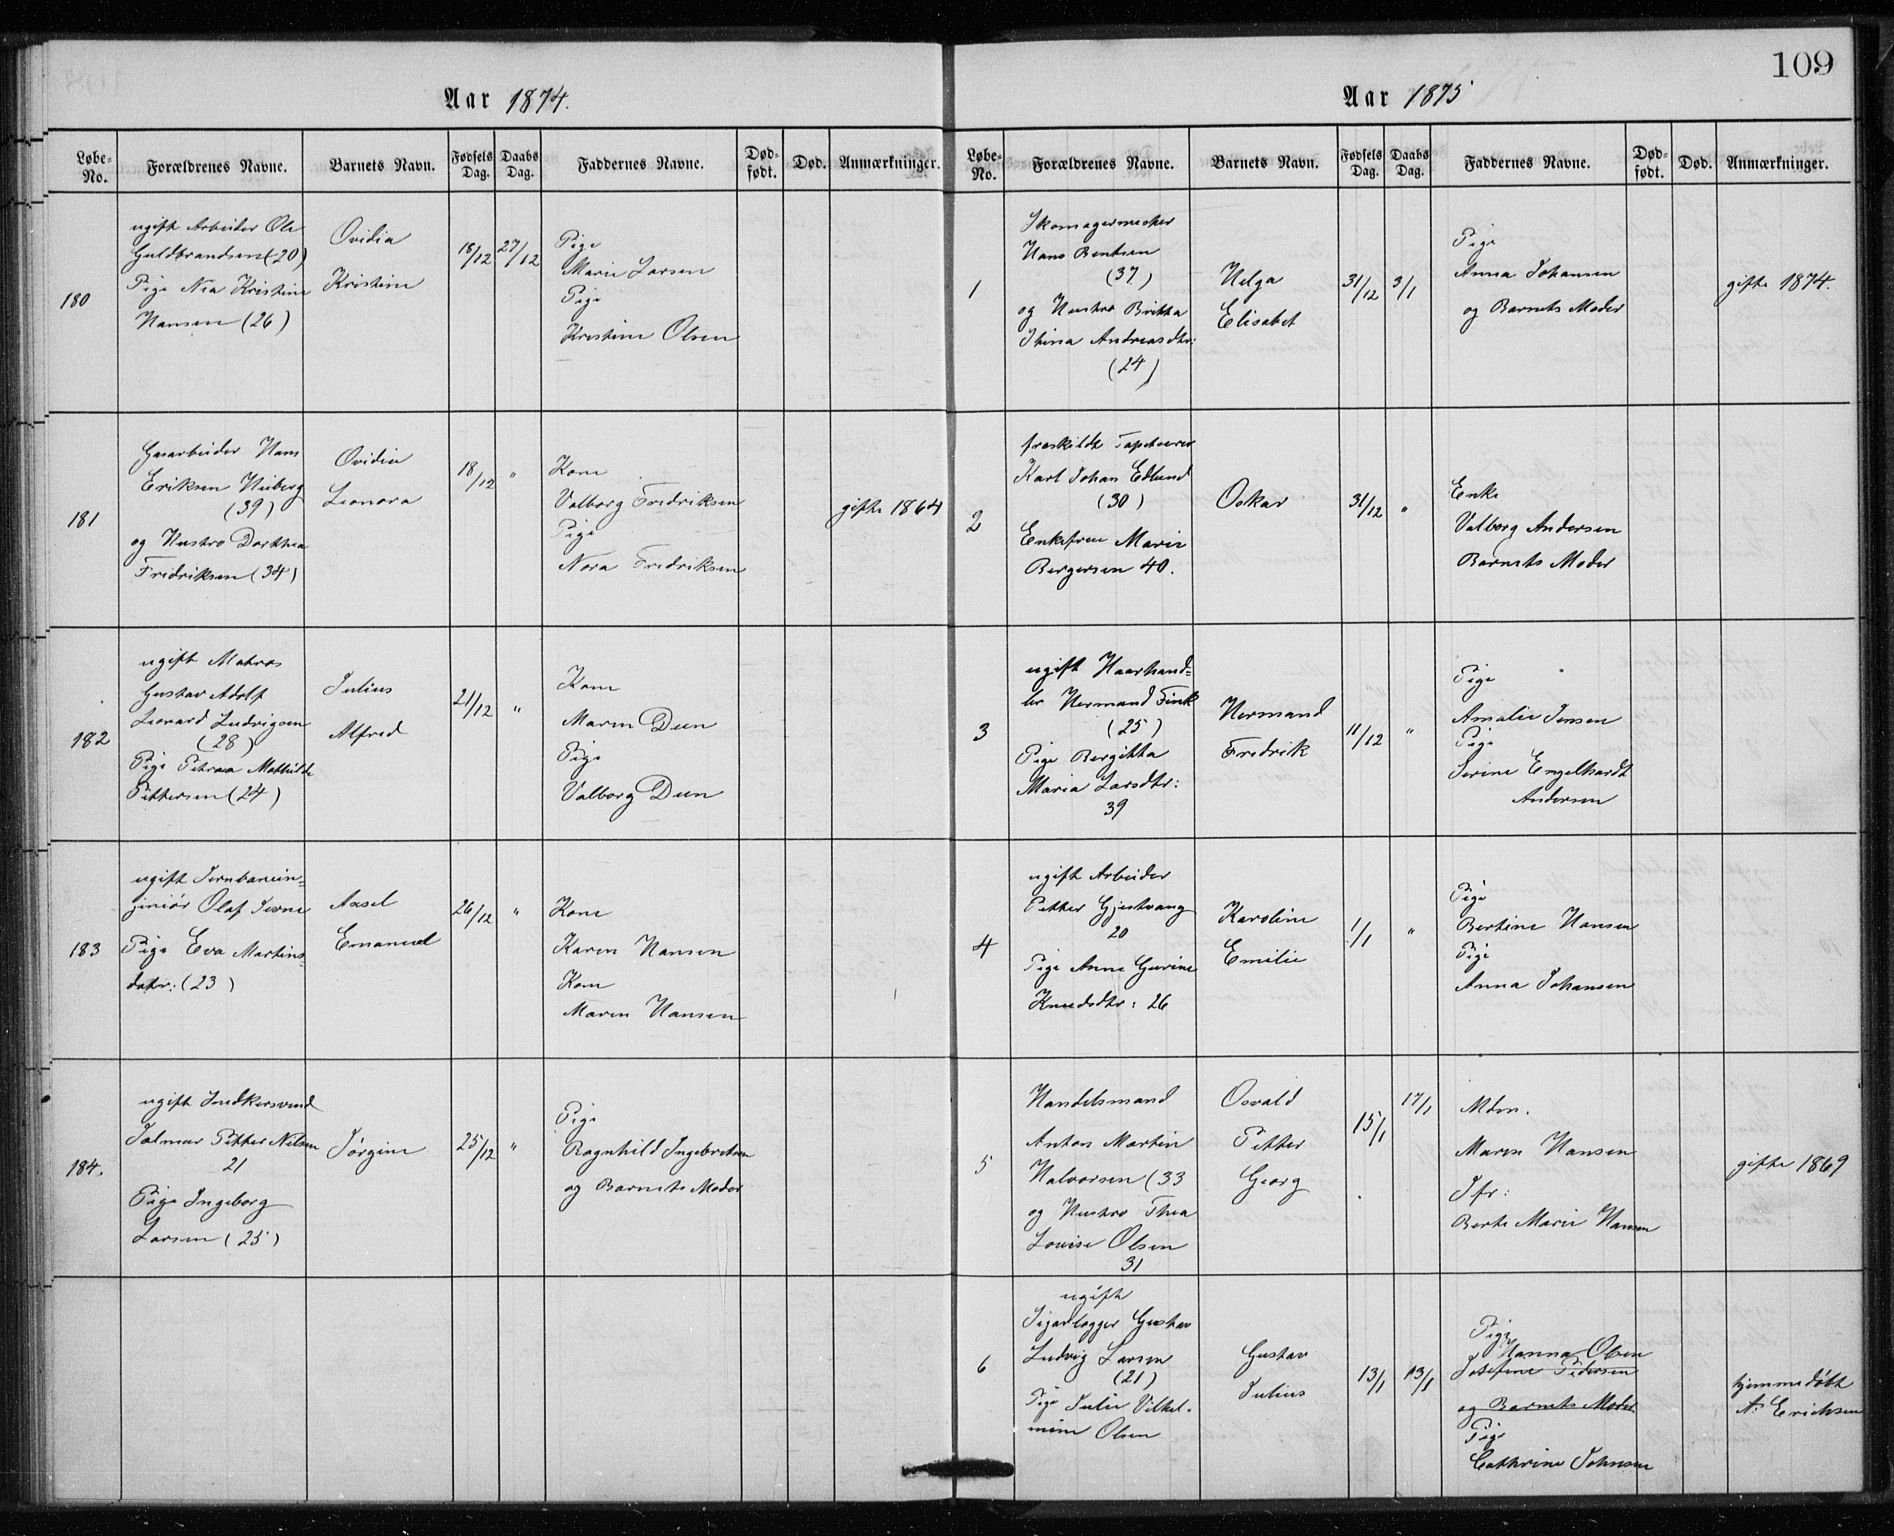 109
Aar 1874.
Løbe-No. Forældrenes Navne. Barnets Navn. Fødsels Dag. Daabs Dag. Faddernes Navne. Død-født. Død. Anmærkninger.
180
ugift Arbeider Ole
Guldbrandsen (20)
Pige Nea Kristine
Hansen (26)
Ovidia
Kristine
18/12 27/12
Pige
Marie Larsen
Pige
Kristine Olsen
181
Gasarbeider Hans
Eriksen Huiberg
(39)
og Hustro Dorthea
Fredriksen (34)
Ovidie
Leonora
18/12 "
Kone
Valborg Fredriksen
Pige
Nora Fredriksen
gifte 1864
182
ugift Matros
Gustav Adolf
Leonard Ludvigsen
(28)
Pige Petrea Mathilde
Pettersen (24)
Julius
Alfred
21/12 "
Kone
Maren Duen
Pige
Valborg Duen
183
ugift Jernbanein=
geniör Olaf
Pige Eva Martins-
datr: (23)
Axel
Emanuel
26/12 "
Kone
Karen Hansen
Kone
Maren Hansen
184.
ugift Snedkersvend
Jalmar Petter Nilsen
21
Pige Ingeborg
Larsen (25)
Jørgine
25/12 "
Pige
Ragnhild Ingebretsen
og Barnets Moder
Aar 1875
Løbe-No. Forældrenes Navne. Barnets Navn. Fødsels Dag. Daabs Dag. Faddernes Navne. Død-født. Død. Anmærkninger.
1
Skomagermester
Hans Bentsen
(37)
og Hustro Britta
Stina Andreasdtr:
(24)
Helga
Elisabet
31/12 3/1
Pige
Anna Johansen
og Barnets Moder
gifte 1874.
2
fraskildt Tapetserer
Karl Johan Edlund
(30)
Enkefrue Marie
Bergersen 40.
Oskar
31/12 "
Enke
Valborg Andersen
Barnets Moder
3
ugift Haarhand=
ler Hermand Fink
(25)
Pige Bergitta
Maria Larsdtr:
39
Hermand
Fredrik
11/12 "
Pige
Amalie Jensen
Pige
Serine Engelhardt
Andersen
4
ugift Arbeider
Petter Gjestvang
20
Pige Anne Gurine
Knudsdtr: 26
Karoline
Emilie
1/1 "
Pige
Bertine Hansen
Pige
Anna Johansen
5
Handelsmand
Anton Martin
Halvorsen (33
og Hustro Thea
Louise Olsen
31
Osvald
Petter
Georg
15/1 17/1
Mdm.
Maren Hansen
Jfr:
Berte Marie Hansen
gifte 1869
6
ugift
Sigarlægger Gustav
Ludvig Larsen
(21)
Pige Julie Vilhel-
mine Olsen
Gustav
Julius
13/1 13/1
Pige
Hanna Olsen
Josefine Pedersen
og Barnets Moder
Pige
Cathrine Johnsen
hjemmedöbt
A. Erichsen